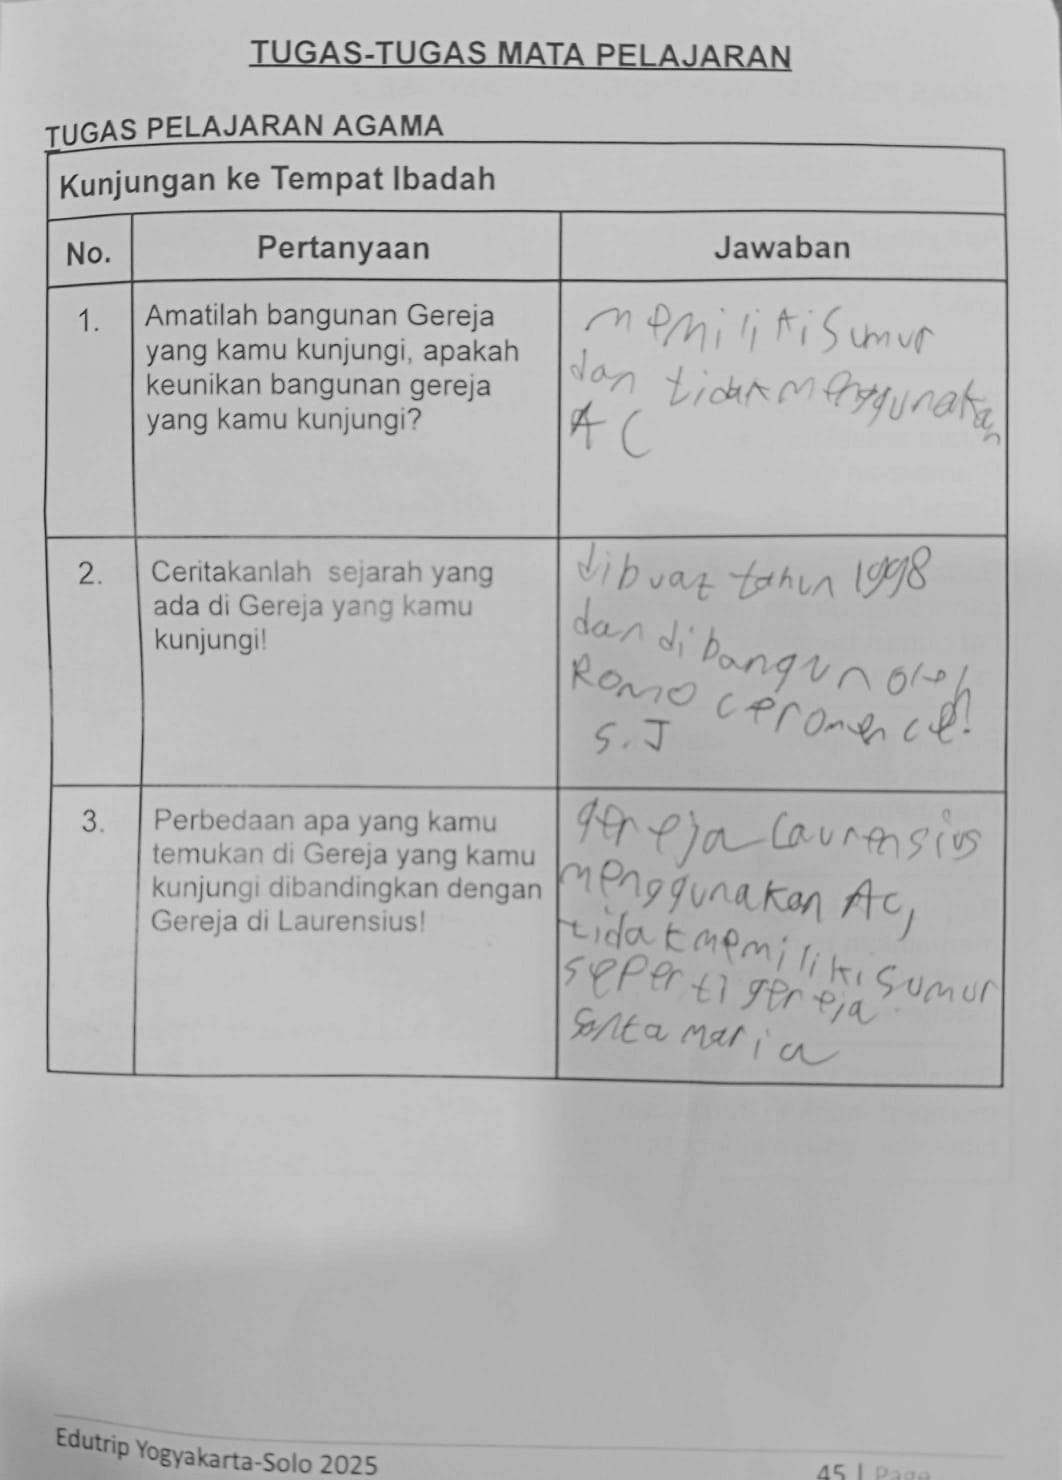 TUGAS-TUGAS MATA PELAJARAN
TUGAS PELAJARAN AGAMA
Kunjungan ke Tempat Ibadah
No. Pertanyaan Jawaban
1. Amatilah bangunan Gereja
yang kamu kunjungi, apakah
keunikan bangunan gereja
yang kamu kunjungi?
memiliki sumur
dan tidak menggunakan
AC
2. Ceritakanlah sejarah yang
ada di Gereja yang kamu
kunjungi!
dibuat tahun 1998
dan dibangun oleh
Romo
S.J
3. Perbedaan apa yang kamu
temukan di Gereja yang kamu
kunjungi dibandingkan dengan
Gereja di Laurensius!
gereja Laurensius
menggunakan AC,
tidak memiliki sumur
seperti gereja
santa maria
Edutrip Yogyakarta-Solo 2025
45 | Page